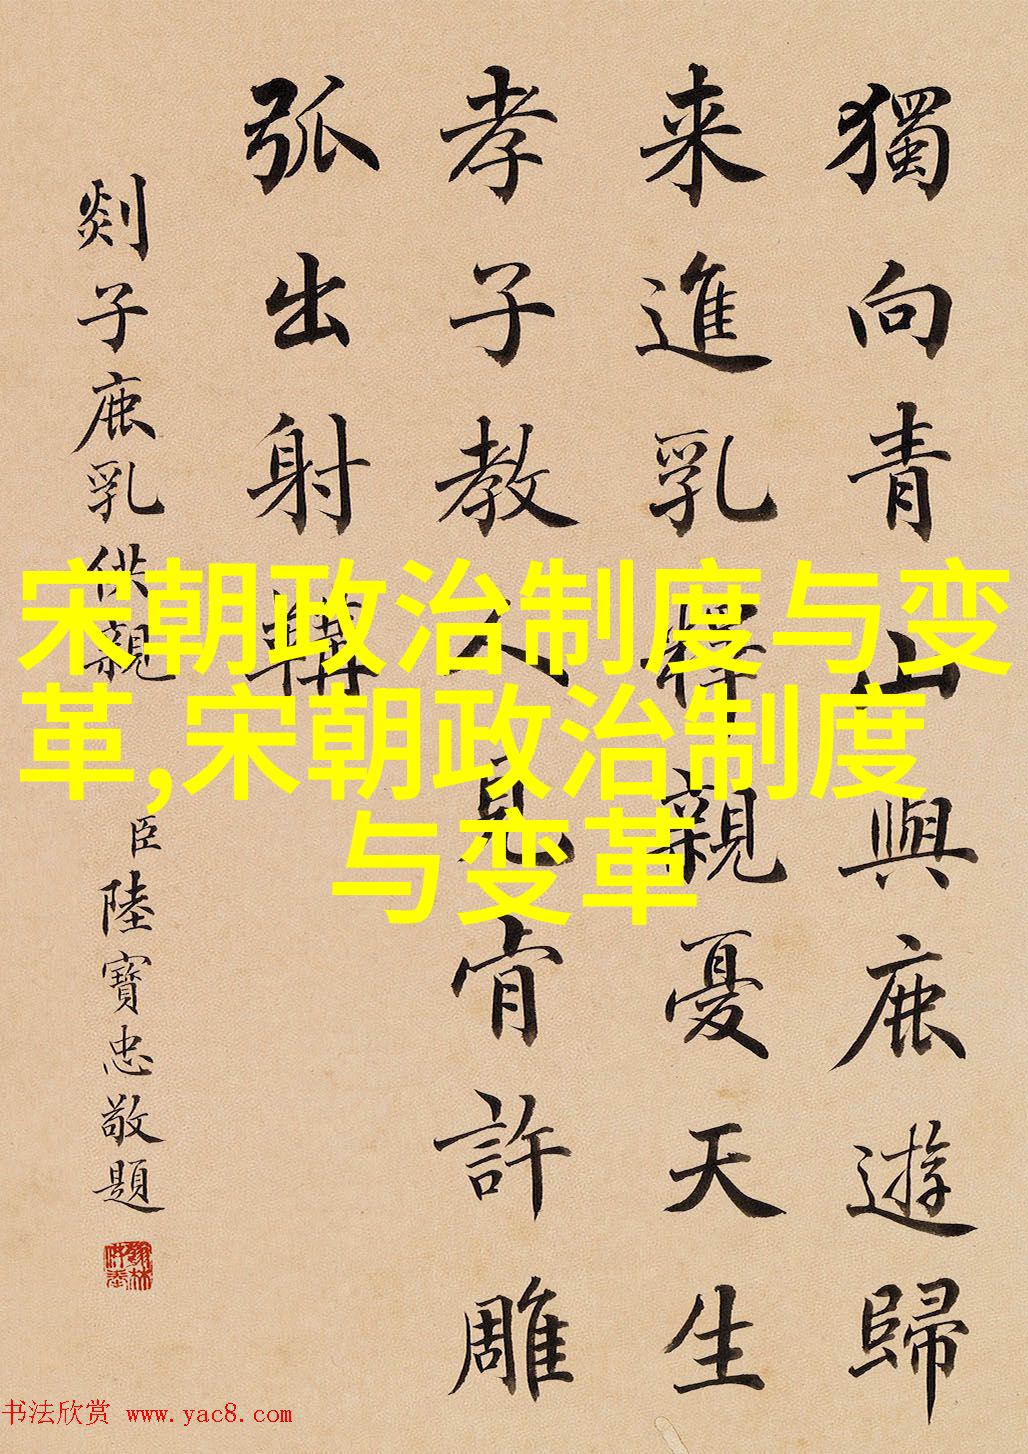 獨向青山與鹿遊歸
来進乳釋親憂天生
孝子教人見肯許雕
弧出射鞲
剡子鹿乳供親
臣陸寶忠敬題
宋朝政治制度与变
革,宋朝政治制度
与变革
书法欣赏 www.yac8.com